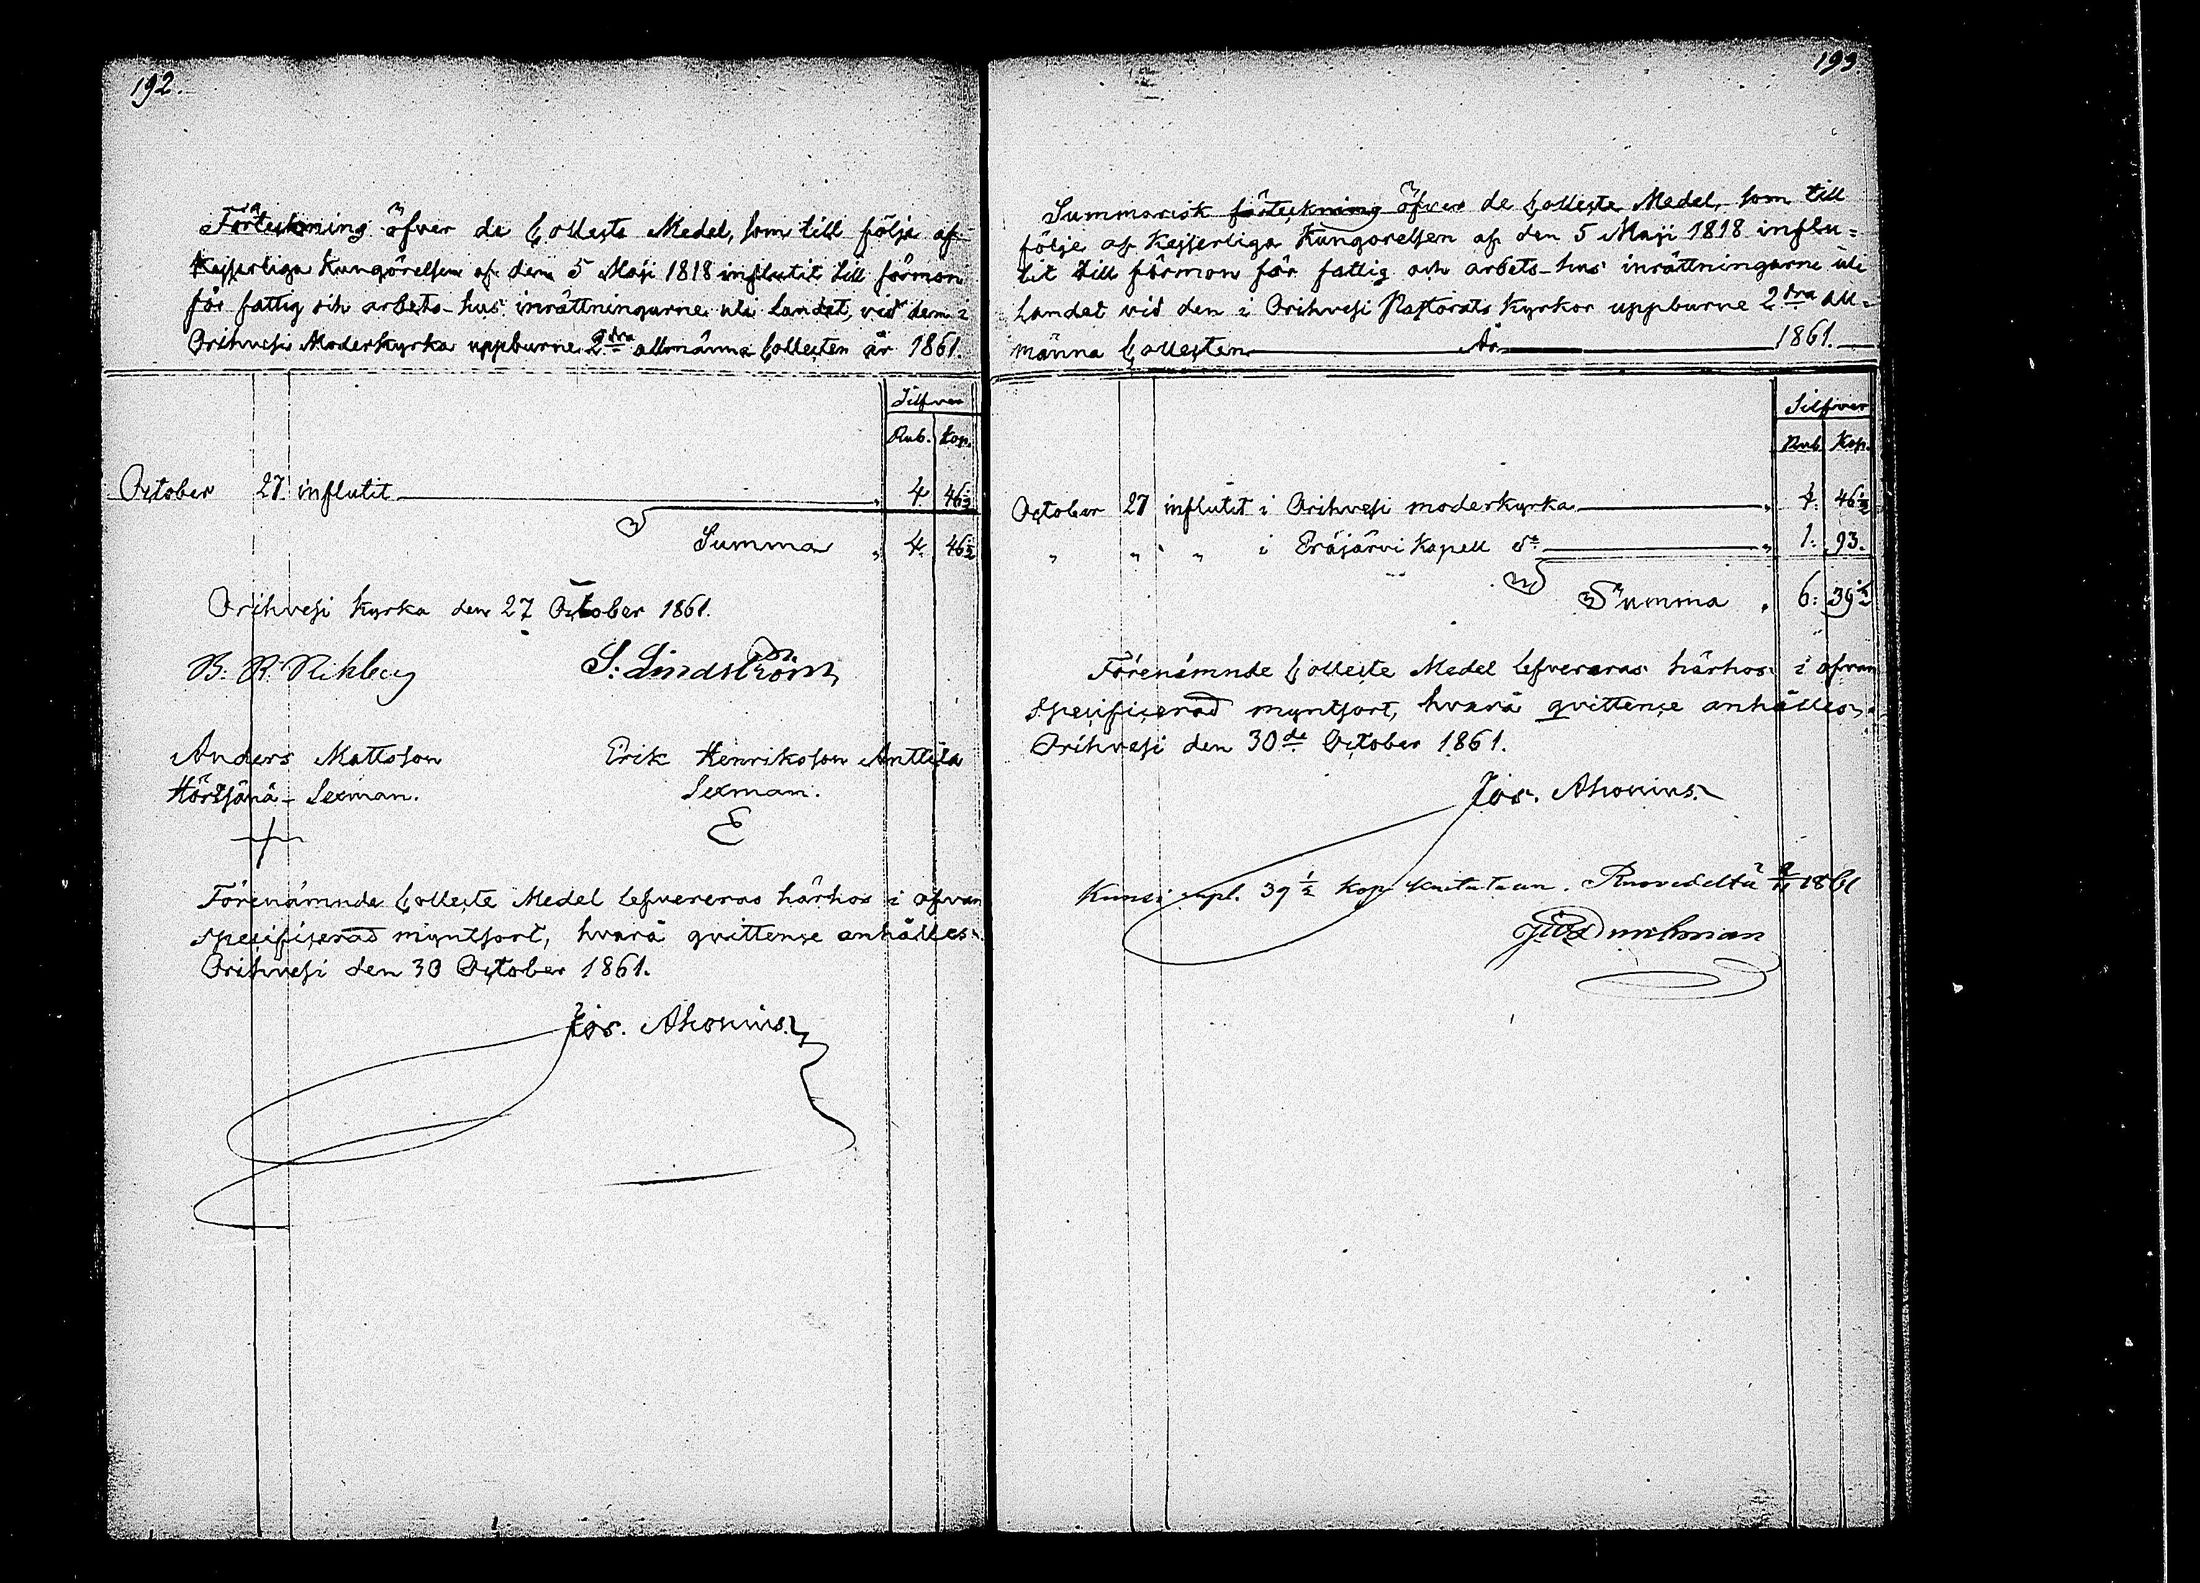 192.
Förteckning öfver de Collects Medel, som till följe af
Kejserliga Kungörelsen af den 5 Maji 1818 influtit till förmon
för fattig och arbets-hus inrättningarne uti landet, vid den i
Orihvesi Moderkyrka uppburne 2dra allmänna Collecten år 1861.
Silfver
Rub. Kop.
October 27 influtit " 4. 46½
Summa " 4. 46½
Orihvesi Kyrka den 27 October 1861.
S. Lindström
Anders Mattsson Erik Henriksson Anttila
Sexman. Sexman.
E
Förenämnde Collecte Medel lefvereras härhos i ofvan
specificerad myntsort, hvarå qvittence anhålles.
Orihvesi den 30 October 1861.
Jos. Ahonius.
193.
Summarisk förteckning öfver de Collecte Medel, som till
följe af Kejserliga Kungorelsen af den 5 Maji 1818 influ=
tit till förmon för fattig och arbets-hus inrättningarne uti
landet vid den i Orihvesi Pastorats Kyrkor uppburne 2dra all=
männa Collecten År 1861.
Silfver
Rub. Kop.
October 27 influtit i Orihvesi moderkyrka " 4. 46½
" " " i Eräjärvi Kapell do " 1. 93.
Summa " 6. 39½
Förenämnde Collecte Medel lefvereras härhos i ofvan
specificerad myntsort, hvarå qvittence anhålles.
Orihvesi den 30de October 1861.
Jos. Ahonius.
Kuusi rupl. 39½ kop kuitataan. Ruovedeltä 1861